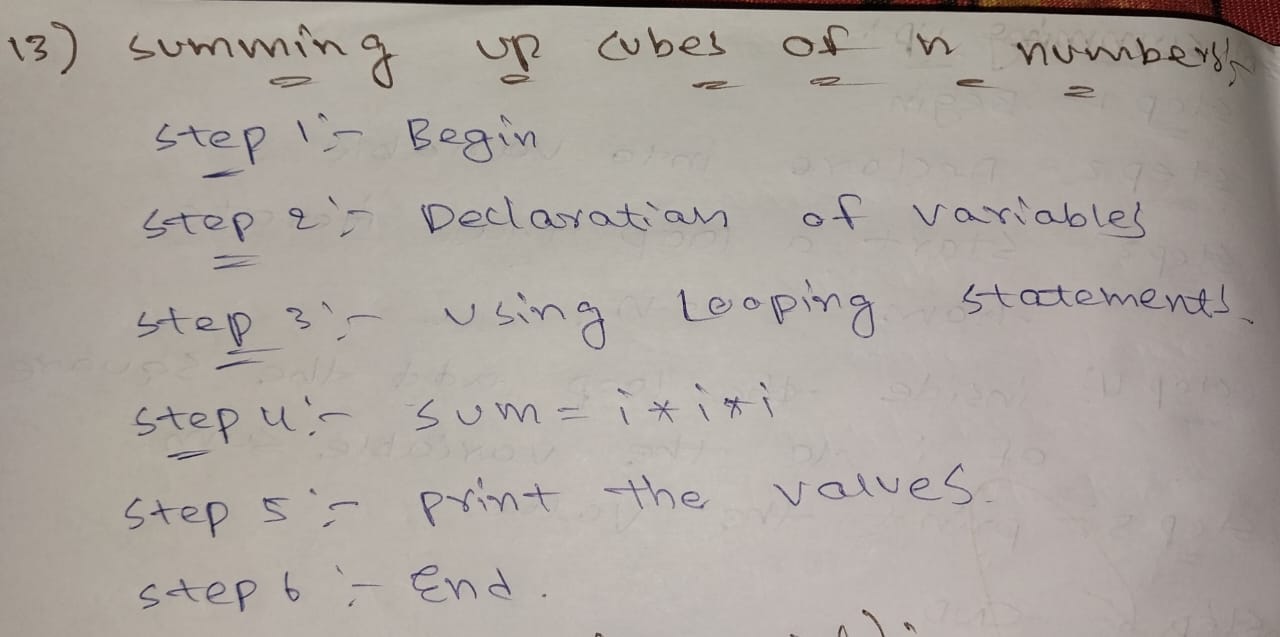 13) summing up cubes of n numbers:-
step 1:- Begin
step 2:- Declaration of variables
step 3:- Using Looping statements.
step 4:- sum = i*i*i
step 5:- print the values.
step 6:- End.